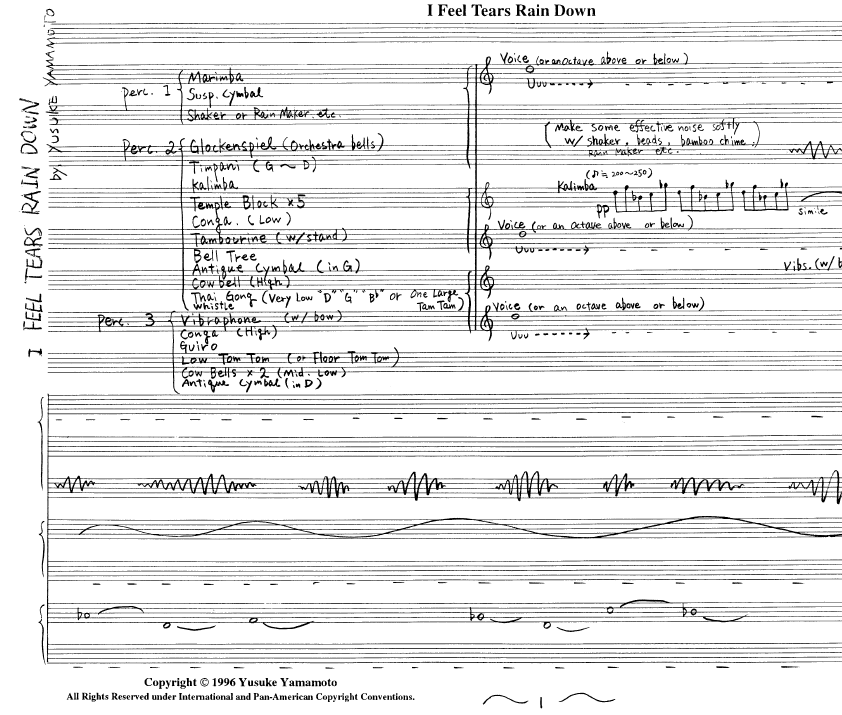 I Feel Tears Rain Down
I FEEL TEARS RAIN DOWN
by. YUSUKE YAMAMOTO
perc. 1
Marimba
Susp. Cymbal
Shaker or Rain Maker. etc.
Perc. 2
Glockenspiel (Orchestra bells)
Timpani (G ~ D)
Kalimba
Temple Block x 5
Conga. (Low)
Tambourine (w/stand)
Bell Tree
Antique Cymbal (in G)
Cowbell (High)
Thai Gong (Very Low "D" "G" "B♭" or One Large
Whistle Tam Tam)
Perc. 3
Vibraphone (w/ bow)
Conga (High)
Guiro
Low Tom Tom (or Floor Tom Tom)
Cow Bells x 2 (Mid. Low)
Antique Cymbal (in D)
Voice (or an Octave above or below)
Uuu
(Make some effective noise softly
w/ shaker, beads, bamboo chime,)
Rain Maker etc.
(♪≒ 200~250)
Kalimba
pp
simile
Voice (or an octave above or below)
Uuu
Vibs. (w/ b
Voice (or an octave above or below)
Uuu
Copyright © 1996 Yusuke Yamamoto
All Rights Reserved under International and Pan-American Copyright Conventions.
~ 1 ~